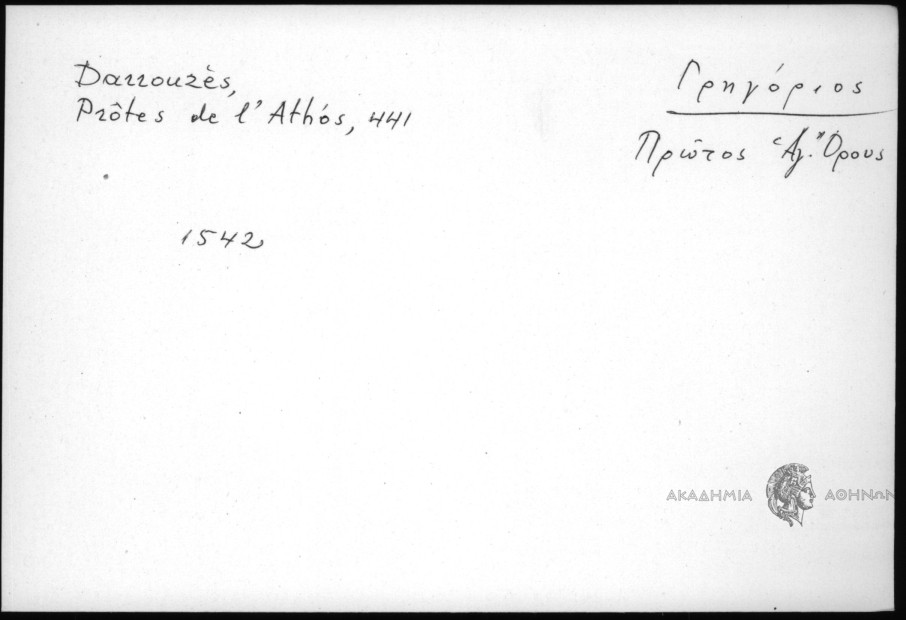 Darrouzès,
Prôtes de l'Athós, 441
Γρηγόριος
Πρῶτος Ἁγ. Ὄρους
1542
ΑΚΑΔΗΜΙΑ ΑΘΗΝΩΝ